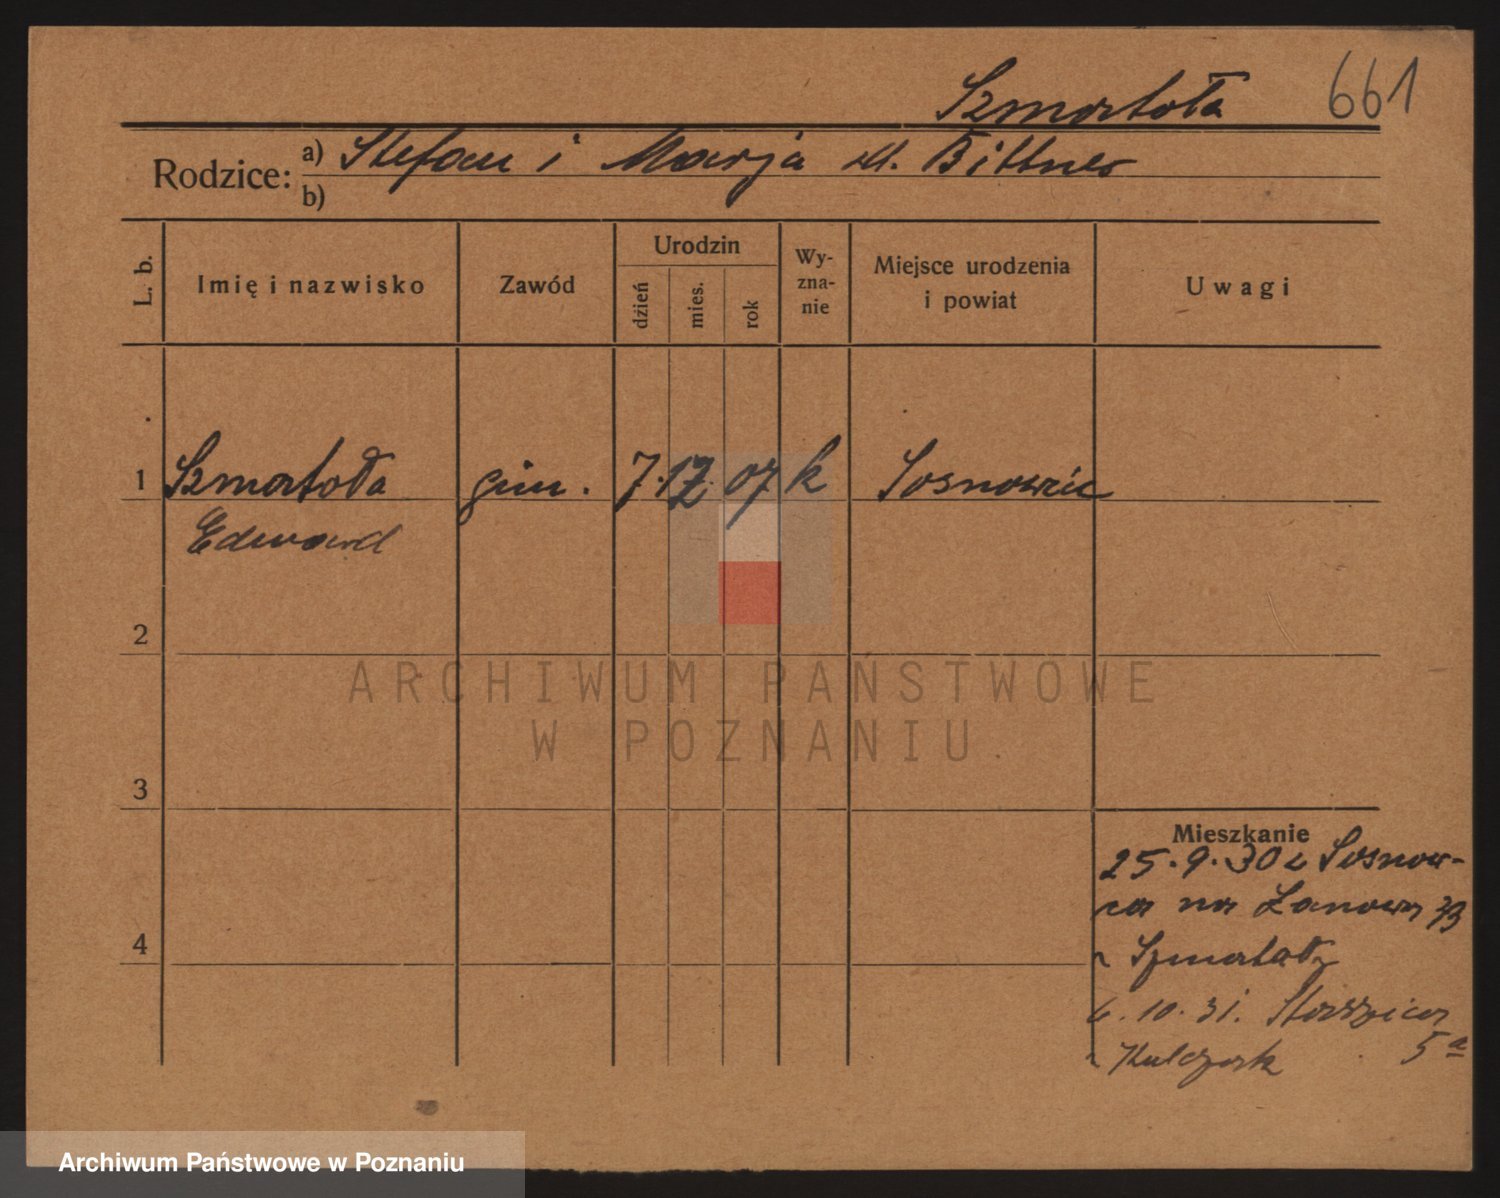 661
Szmartoła
Rodzice: a) Stefan i Marja zd. Bittner
b)
L. b.
Imię i nazwisko
Zawód
Urodzin
dzień
mies.
rok
Wy-
zna-
nie
Miejsce urodzenia
i powiat
Uwagi
1 Szmartoła gim. 7. 12. 07 k Sosnowic
Edward
2
3
4
Mieszkanie
25.9.30 z Sosnow-
ca na Łanowa
Szmartoła
6.10.31. Staszica
5a
Kulczak
ARCHIWUM PAŃSTWOWE
W POZNANIU
Archiwum Państwowe w Poznaniu